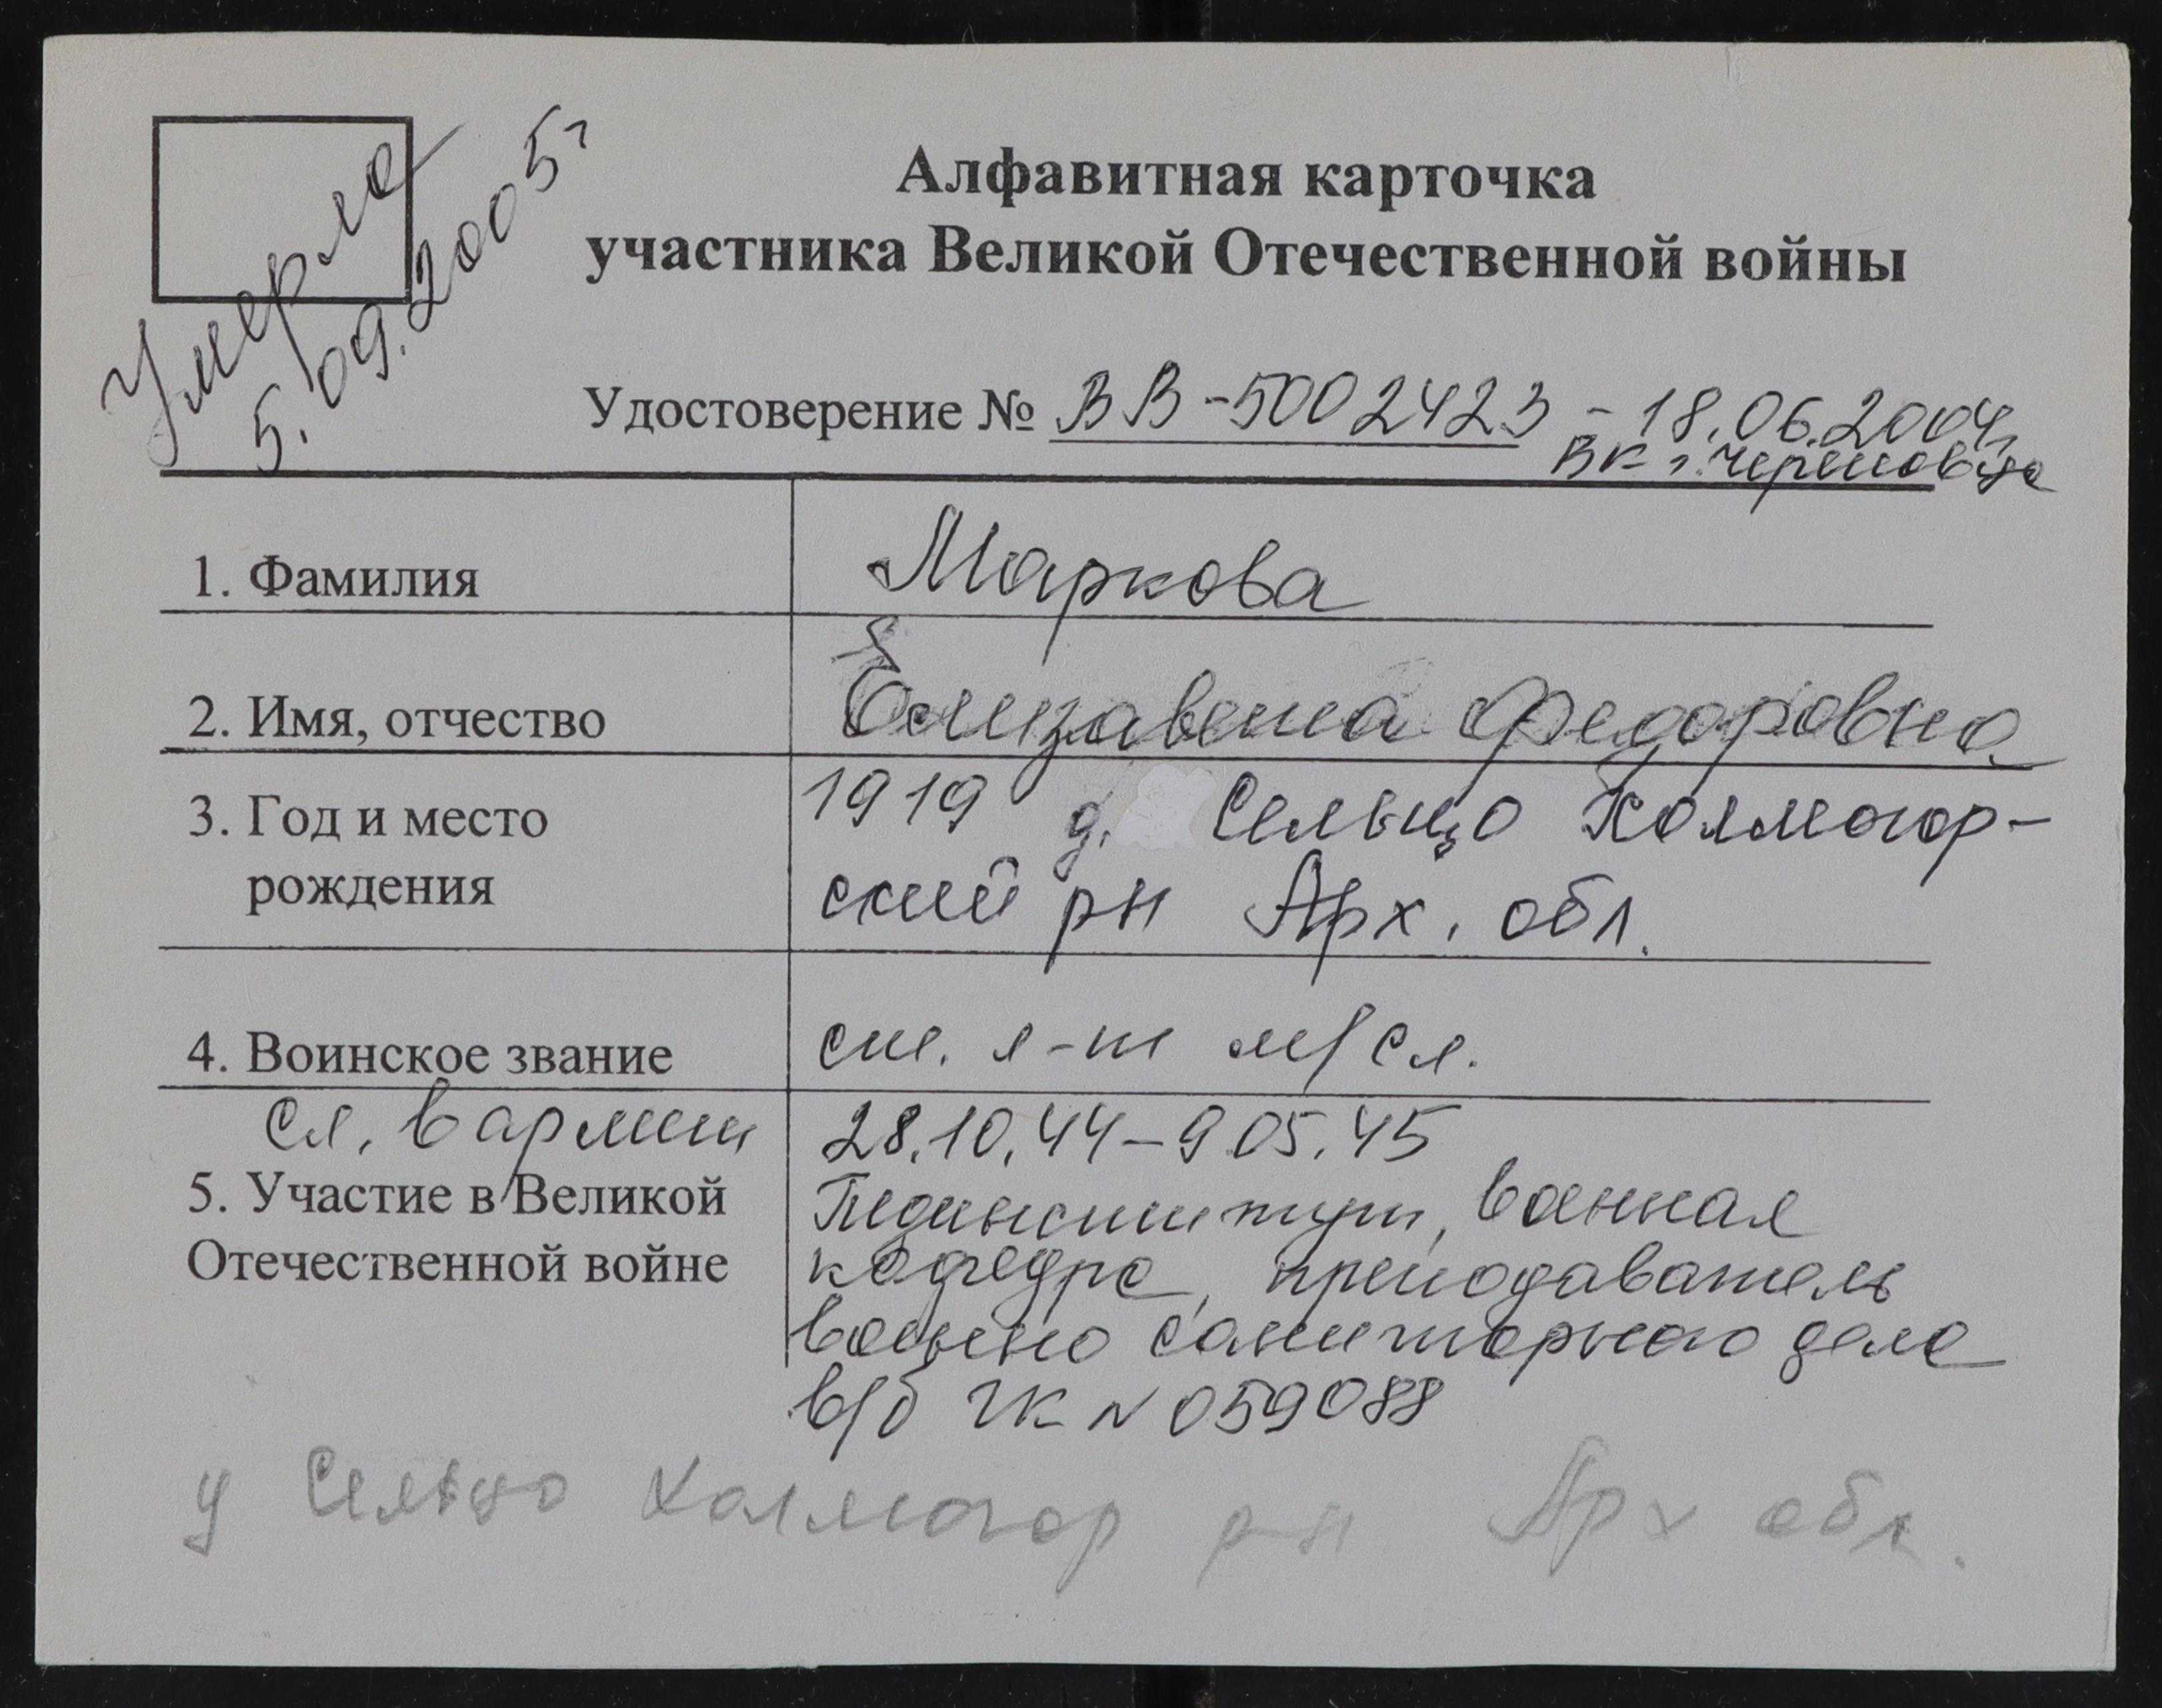 Умерла
5.09.2005г
Алфавитная карточка
участника Великой Отечественной войны
Удостоверение № ВВ-5002423 - 18.06.2004г
ВК г. Череповца
1. Фамилия Маркова
2. Имя, отчество Елизавета Федоровна
3. Год и место 1919 д. Сельцо Холмогор-
рождения ский рн Арх. обл.
4. Воинское звание ст. л-т м/сл.
Сл. в армии 28.10.44-9.05.45
5. Участие в Великой Пединститут, военная
Отечественной войне кафедра, преподаватель
военно санитарного дела
в/б ГК № 059088
Сельцо Холмогор рн Арх обл.